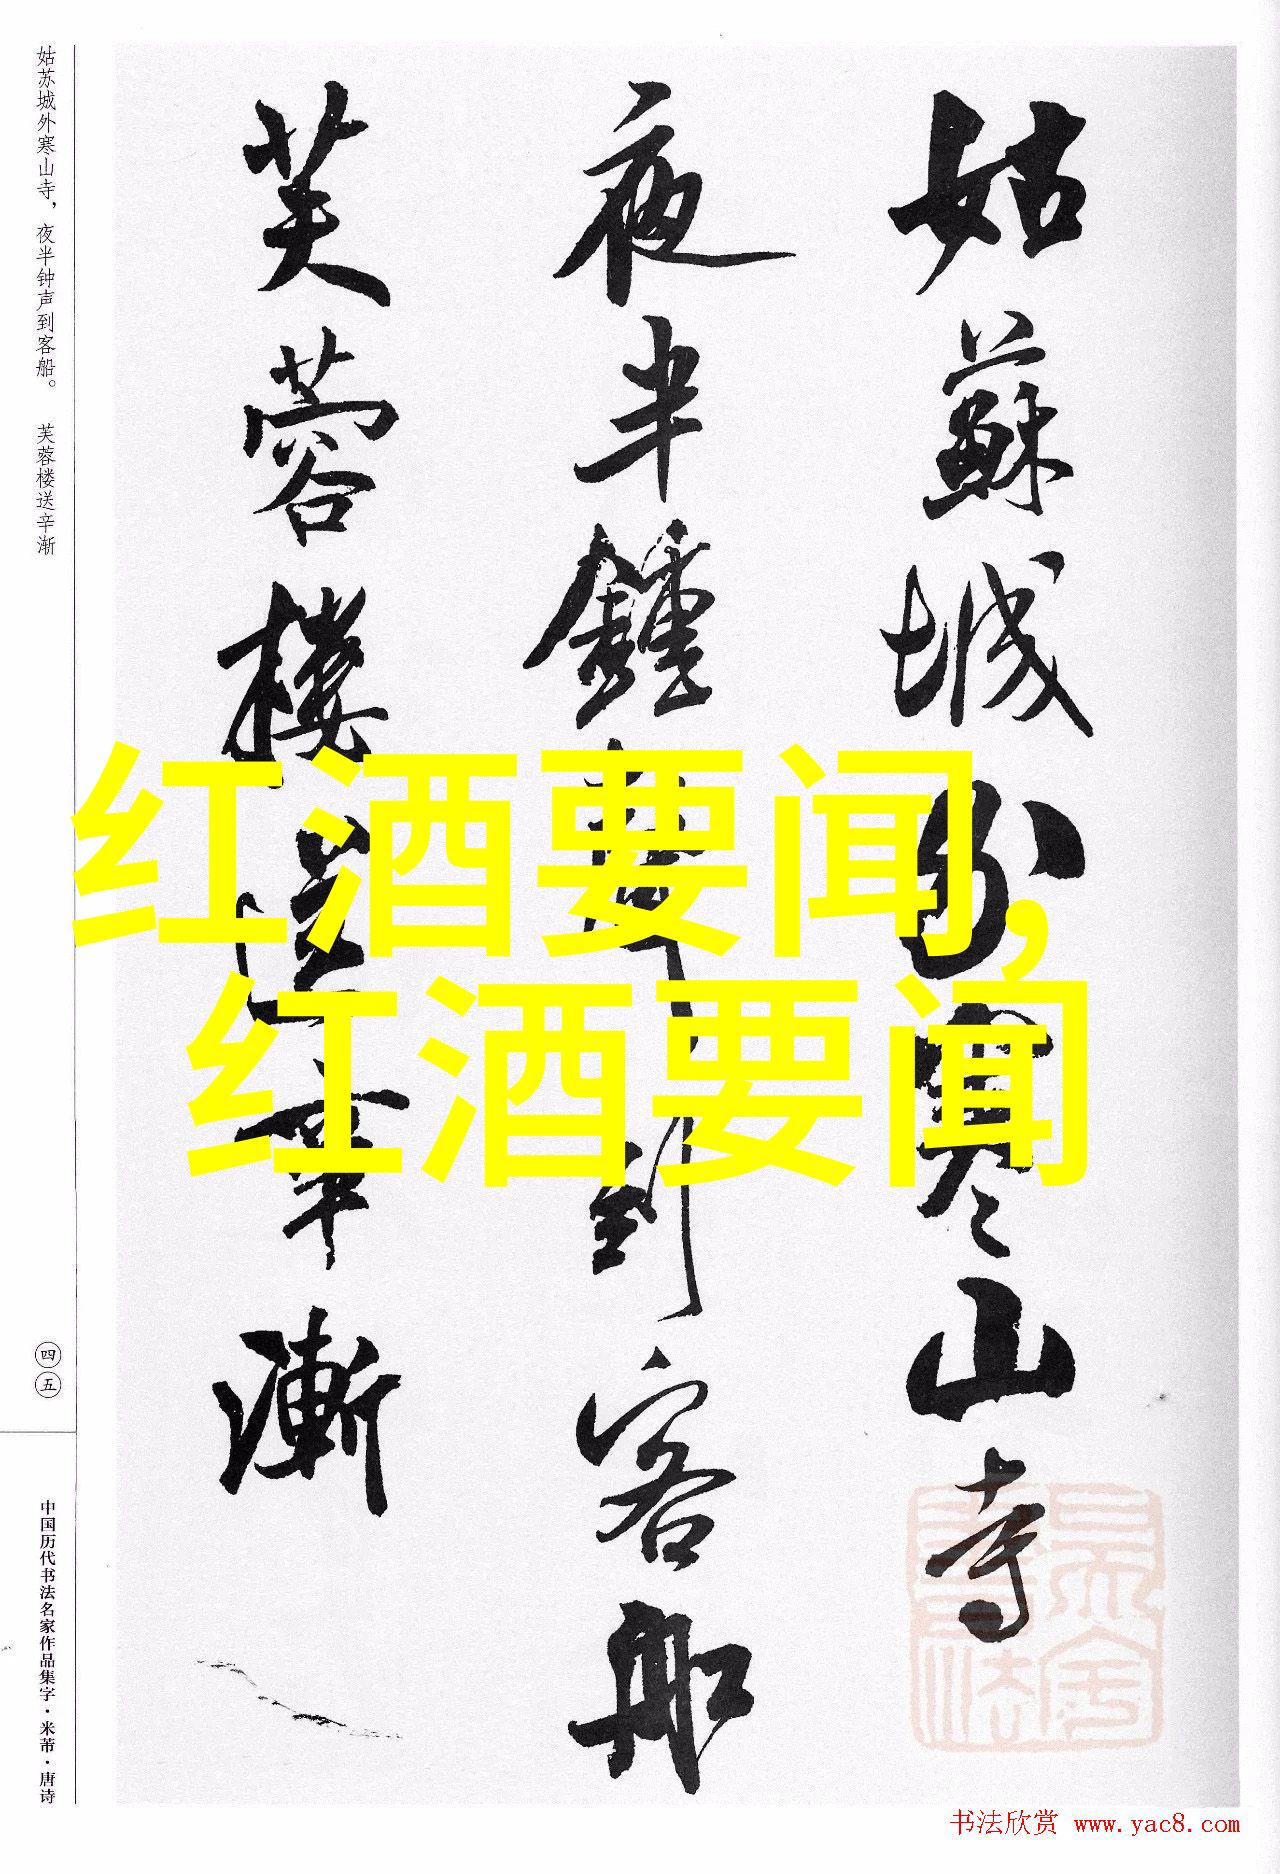 姑蘇城外寒山寺
夜半鍾聲到客船
芙蓉樓送辛漸
姑苏城外寒山寺，夜半钟声到客船。 芙蓉楼送辛渐
四五
中国历代书法名家作品集字·米芾·唐诗
红酒要闻,
红酒要闻
书法欣赏 www.yac8.com